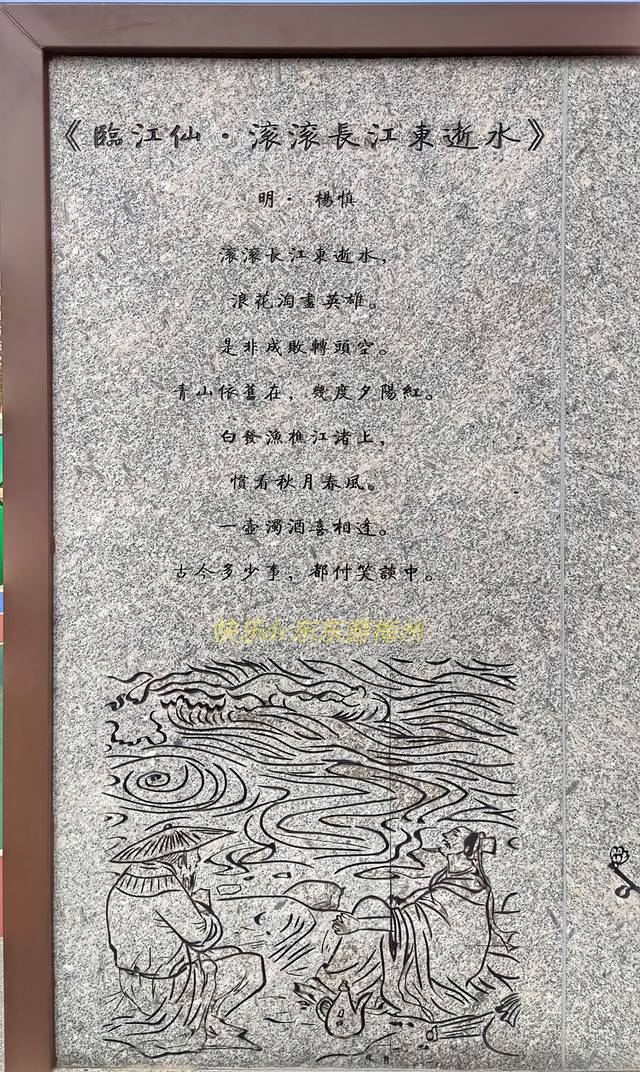 《臨江仙·滚滚長江東逝水》
明· 楊慎
滚滚長江東逝水，
浪花淘盡英雄。
是非成敗轉頭空。
青山依舊在，幾度夕陽紅。
白發漁樵江渚上，
慣看秋月春風。
一壺濁酒喜相逢。
古今多少事，都付笑談中。
快乐山东东游梅州